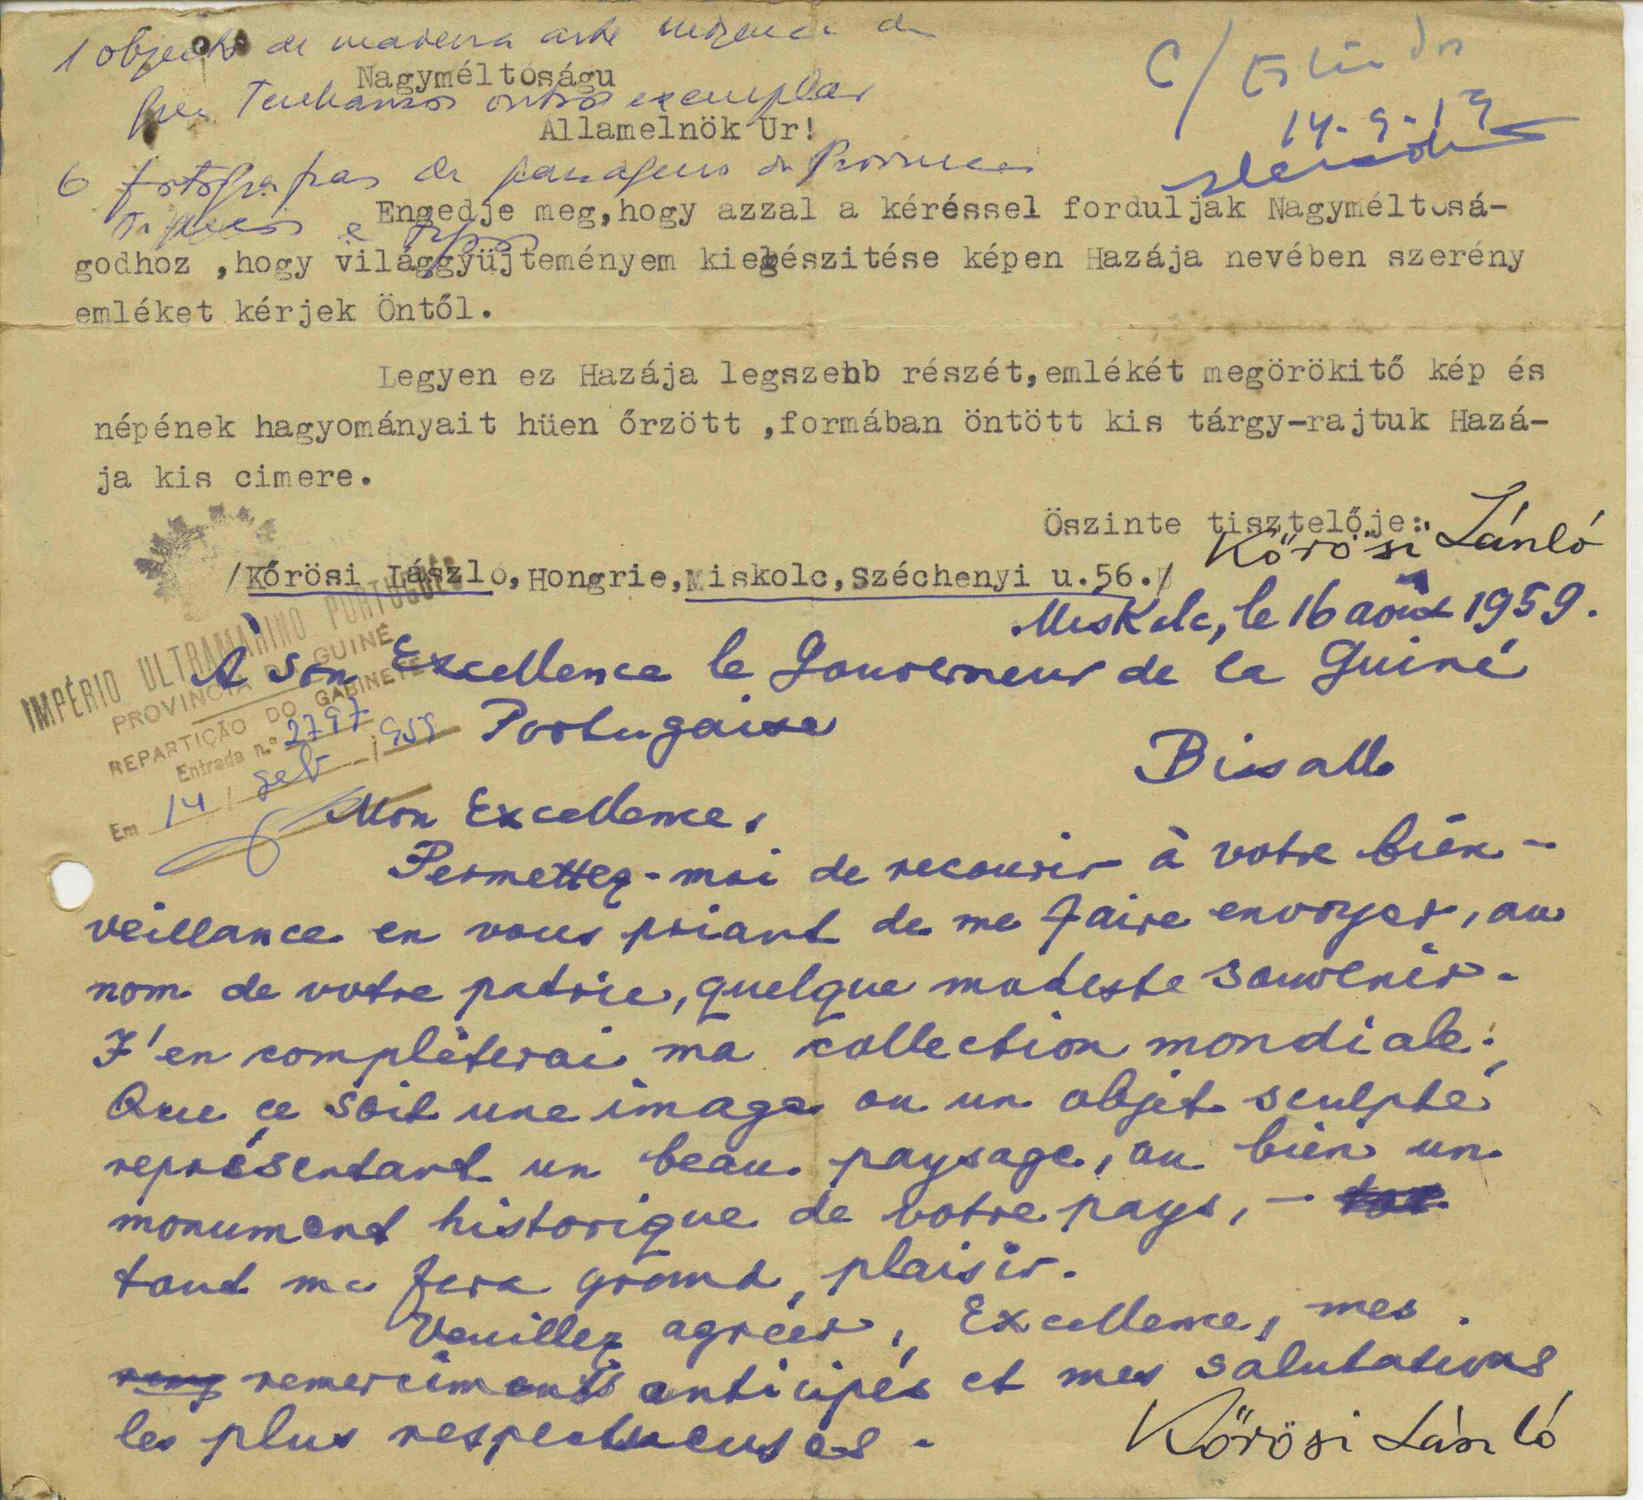 1 objecto de madeira arte indigena da
Nagyméltóságu
outros exemplar
Allamelnök Ur!
C/
14-9-19
6 fotografias de paisagens da Provincia
Engedje meg,hogy azzal a kéréssel forduljak Nagyméltósá-
godhoz ,hogy világgyüjteményem kiegészitése képen Hazája nevében szerény
emléket kérjek Öntől.
Legyen ez Hazája legszebb részét,emlékét megörökitő kép és
népének hagyományait hüen őrzött ,formában öntött kis tárgy-rajtuk Hazá-
ja kis cimere.
Öszinte tisztelője:
Kőrösi László
/Kőrösi László,Hongrie,Miskolc,Széchenyi u.56./
Miskolc, le 16 août 1959.
IMPÉRIO ULTRAMARINO PORTUGUÊS
PROVINCIA DA GUINÉ
REPARTIÇÃO DO GABINETE
Entrada n.º 2797
Em 14 / Set / 959
À son Excellence le Gouverneur de la Guiné
Portugaise
Bissau
Mon Excellence,
Permettez-moi de recourir à votre bien-
veillance en vous priant de me faire envoyer, au
nom de votre patrie, quelque modeste souvenir.
J'en complèterai ma collection mondiale.
Que ce soit une image ou un objet sculpté
représentant un beau paysage, ou bien un
monument historique de votre pays, -
tout me fera grand plaisir.
Veuillez agréer, Excellence, mes
remerciments anticipés et mes salutations
les plus respectueuses.
Kőrösi László